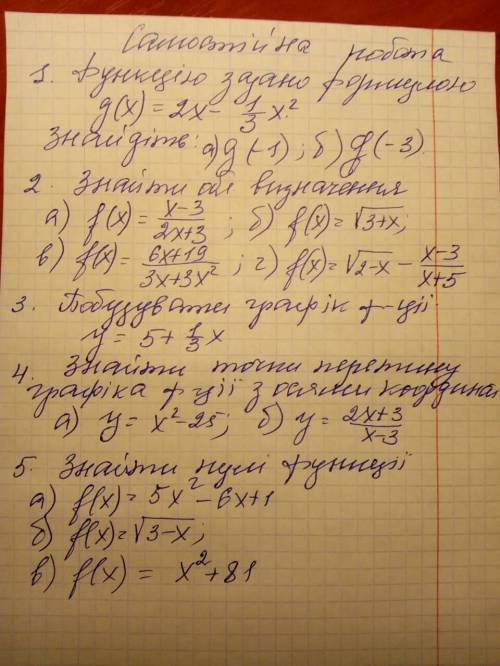 Самостійна робота
1. Функцію задано формулою
g(x) = 2x - 1/3 x².
Знайдіть: а) g(-1); б) g(-3).
2. Знайти обл визначення
а) f(x) = (x-3)/(2x+3); б) f(x) = √(3+x);
в) f(x) = (6x+19)/(3x+3x²); г) f(x) = √(2-x) - (x-3)/(x+5)
3. Побудувати графік ф-ції
y = 5 + 1/3 x
4. Знайти точки перетину
графіка ф-ції з осями координат
а) y = x² - 25; б) y = (2x+3)/(x-3)
5. Знайти нулі функції
а) f(x) = 5x² - 6x + 1
б) f(x) = √(3-x);
в) f(x) = x² + 81